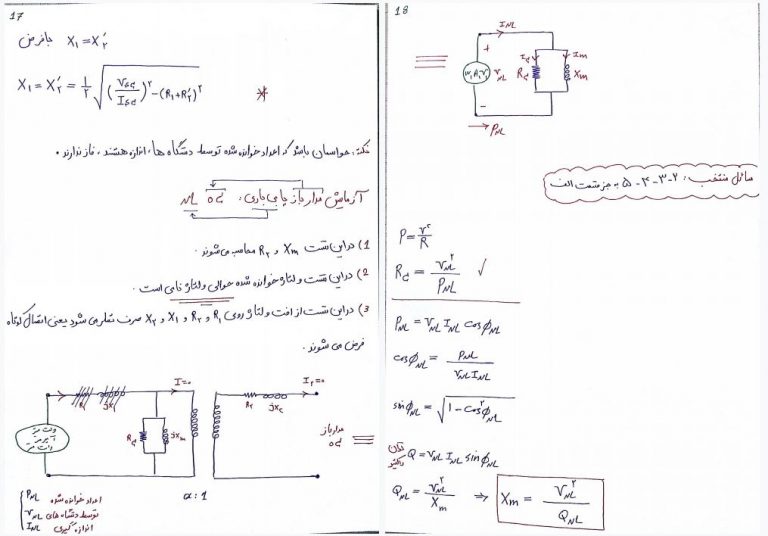 17
با فرض X₁ = X₂′
X₁ = X₂′ = ½ √((Vsc/Isc)² − (R₁ + R₂′)²) *
نکته: حواستان باشد که اعداد خوانده شده توسط دستگاه ها، اندازه هستند، فاز ندارند.
آزمایش مدار باز یا بی باری: NL
1) در این تست Xm و محاسبه می شوند.
2) در این تست ولتاژ خوانده شده حوالی ولتاژ نامی است.
3) در این تست از افت ولتاژ روی R₁ و R₂ و X₁ و X₂ صرف نظر می شود یعنی اتصال کوتاه
فرض می شوند.
I=0
I₂=0
R₁ jX₁
R₂
jXm
مدار باز
a : 1
PNL
VNL
INL
اعداد خوانده شده
توسط دستگاه های
اندازه گیری
18
INL
+
Im
W, A, V
VNL
Xm
−
PNL
مسائل منتخب: 2-3-4-5 به جز قسمت الف
P = V²/R
Rc = VNL²/PNL ✓
PNL = VNL INL cosφNL
cosφNL = PNL/(VNL INL)
sinφNL = √(1 − cos²φNL)
توان راکتیو Q = VNL INL sinφNL
QNL = VNL²/Xm ⇒ Xm = VNL²/QNL